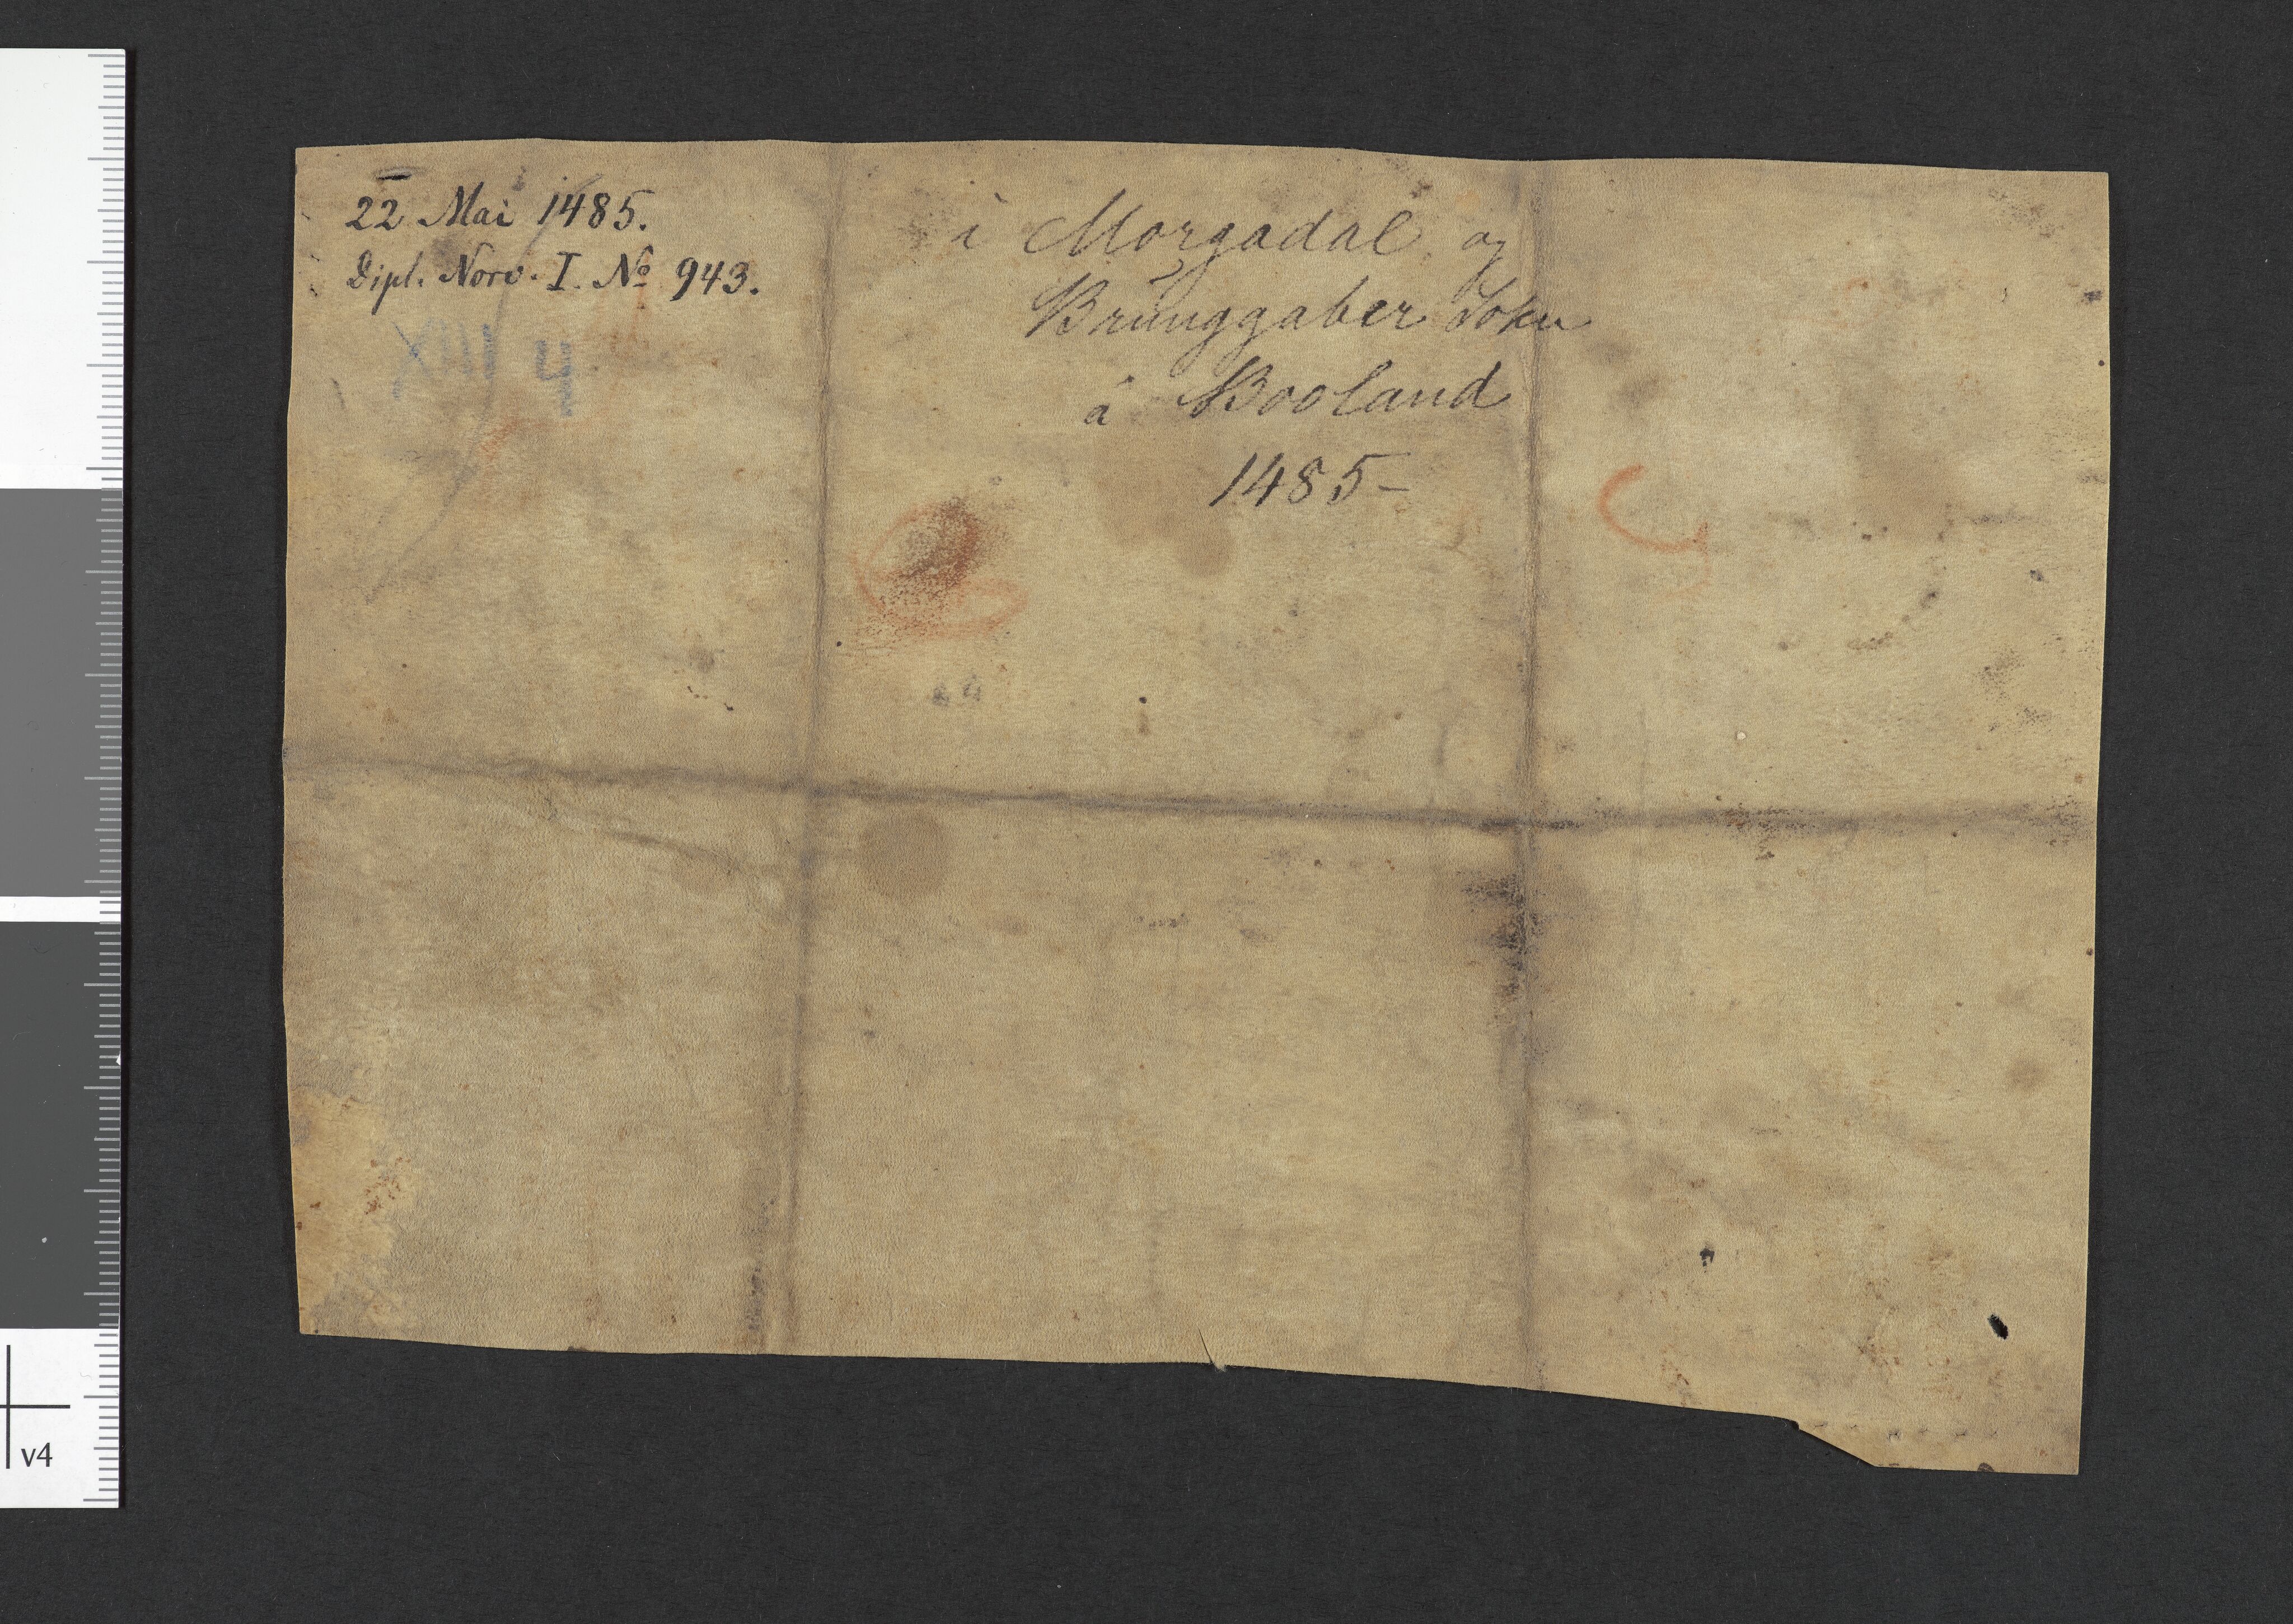 22 Mai 1485.
Dipl. Norv. I. No 943.
i Morgadal og
Brunggaber Sokn
á Booland
1485-
v4